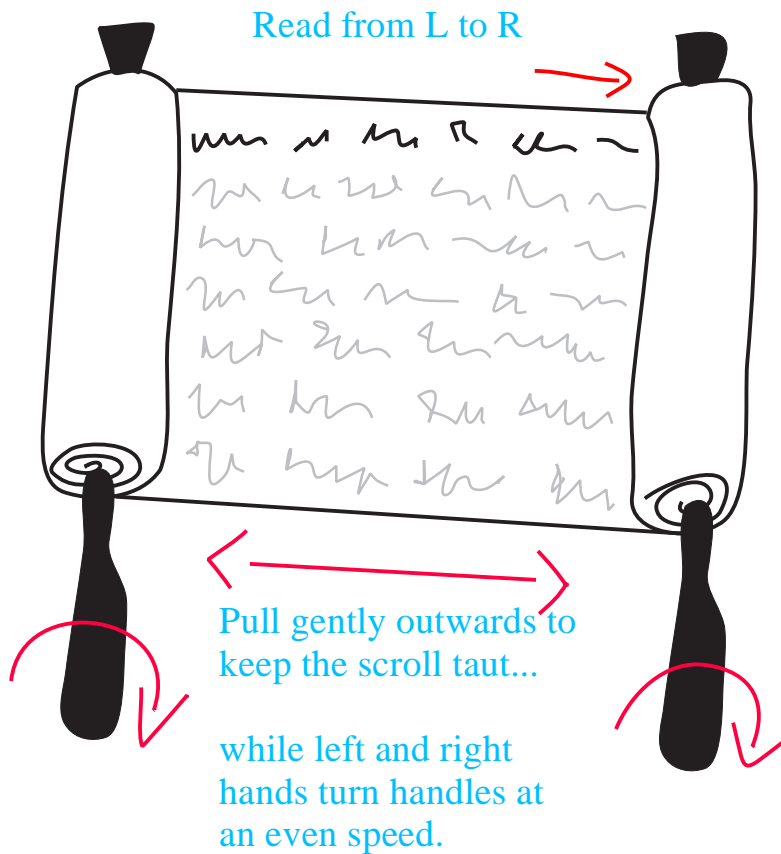 Read from L to R
Pull gently outwards to
keep the scroll taut...
while left and right
hands turn handles at
an even speed.